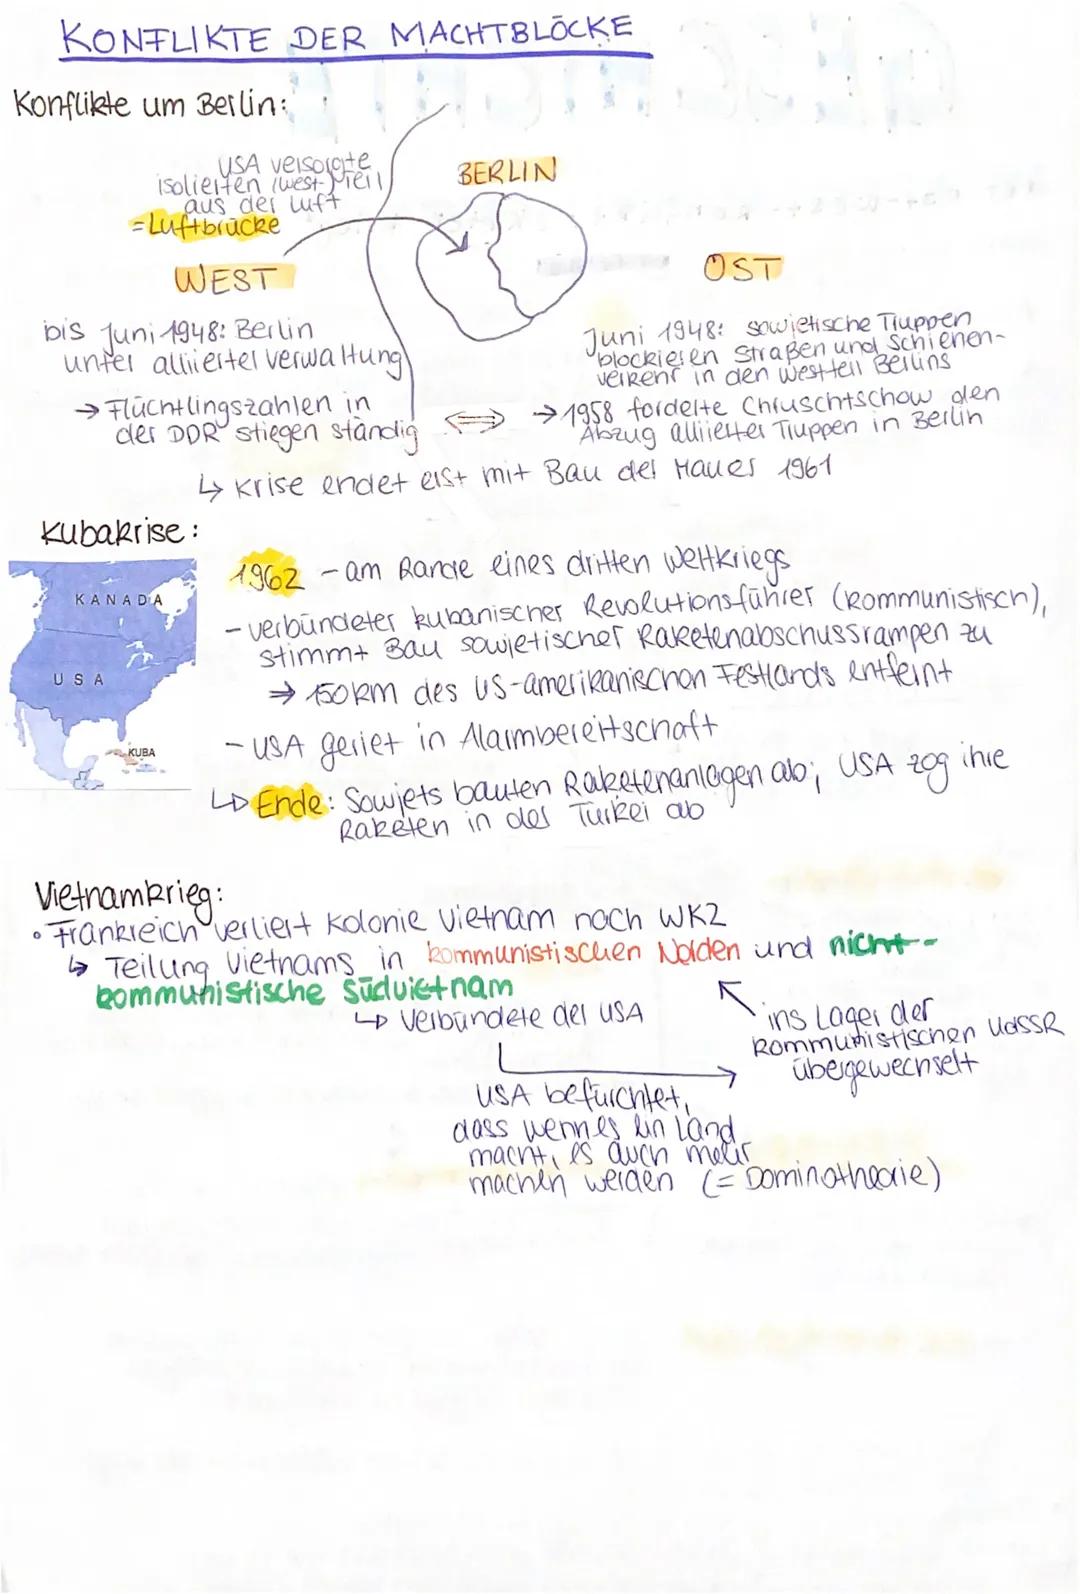 KONFLIKTE DER MACHTBLÖCKE
Konflikte um Berlin:
USA versorgte
isolierten (west-)Teil
aus der Luft
= Luftbrücke
BERLIN
WEST
OST
bis Juni 1948: Berlin
unter alliierter verwaltung
→ Flüchtlingszahlen in
der DDR stiegen ständig
Juni 1948: sowjetische Truppen
blockieren Straßen und Schienen-
verkehr in den westteil Berlins
⇔ → 1958 forderte Chruschtschow den
Abzug alliierter Truppen in Berlin
↳ Krise endet erst mit Bau der Mauer 1961
Kubakrise:
KANADA
USA
KUBA
1962 - am Rande eines dritten Weltkriegs
- verbündeter kubanischer Revolutionsführer (kommunistisch),
stimmt Bau sowjetischer Raketenabschussrampen zu
⇒ 150km des US-amerikanischen Festlands entfernt
- USA geriet in Alarmbereitschaft
↳ Ende: Sowjets bauten Raketenanlagen ab; USA zog ihre
Raketen in der Türkei ab
Vietnamkrieg:
• Frankreich verliert Kolonie Vietnam nach WK2
↳ Teilung Vietnams in kommunistischen Norden und nicht-
kommunistische Südvietnam
↳ Verbündete der USA
ins Lager der
kommunistischen UdSSR
übergewechselt
USA befürchtet,
dass wenn es ein Land
macht, es auch mehr
machen werden (= Dominotheorie)